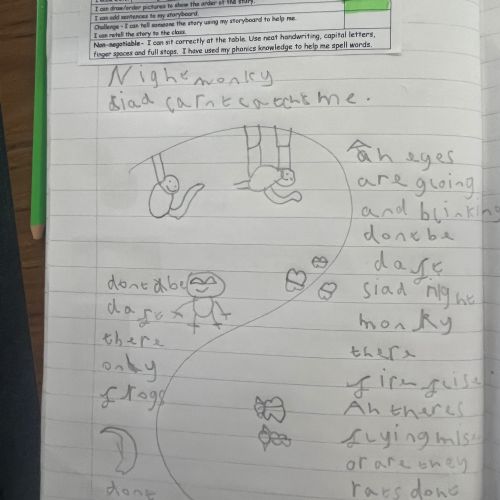 I can draw/order pictures to show the order of the story.
I can add sentences to my storyboard.
Challenge - I can tell someone the story using my storyboard to help me.
I can retell the story to the class.
Non-negotiable- I can sit correctly at the table. Use neat handwriting, capital letters,
finger spaces and full stops. I have used my phonics knowledge to help me spell words.
Night monky
siad carnt catch me.
Ah eges
are glowing
and blinking
dont be
daft
siad night
monky
there
fire flise
Ah theres
flying mise
or are they
rats dont
dont be
daft
there
only
frogs
dont